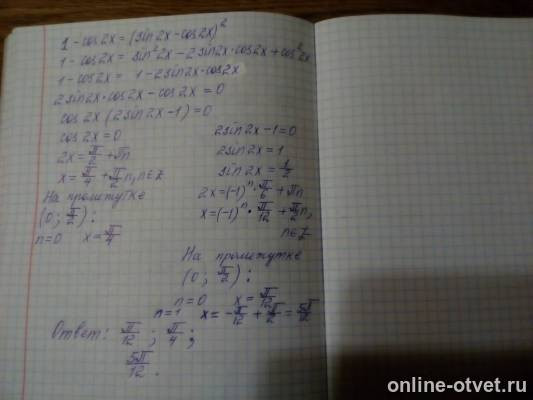 1 - cos2x = (sin2x - cos2x)²
1 - cos2x = sin²2x - 2sin2x·cos2x + cos²2x
1 - cos2x = 1 - 2sin2x·cos2x
2sin2x·cos2x - cos2x = 0
cos2x(2sin2x - 1) = 0
cos2x = 0
2x = π/2 + πn
x = π/4 + π/2 n, n∈Z
На промежутке
(0; π/2):
n=0 x = π/4
2sin2x - 1 = 0
2sin2x = 1
sin2x = 1/2
2x = (-1)ⁿ·π/6 + πn
x = (-1)ⁿ·π/12 + π/2 n,
n∈Z
На промежутке
(0; π/2):
n=0 x = π/12
n=1 x = -π/12 + π/2 = 5π/12
Ответ: π/12; π/4;
5π/12.
online-otvet.ru